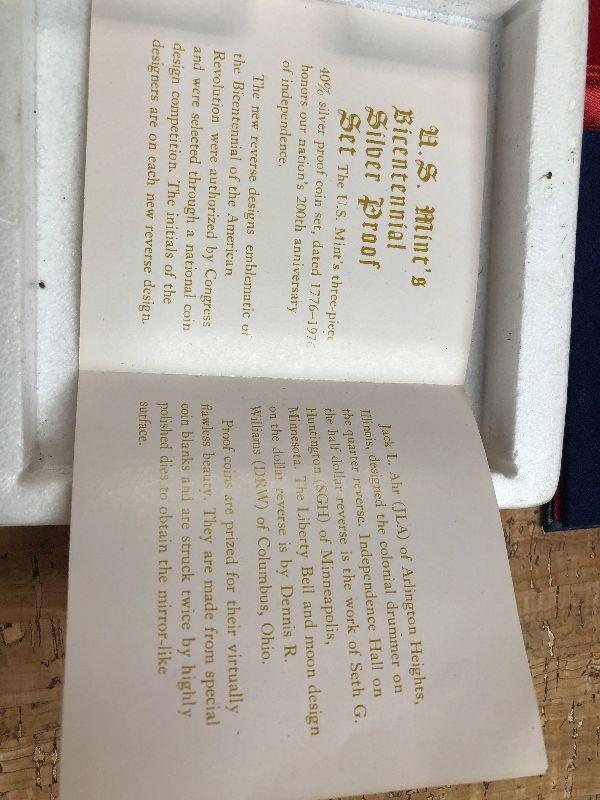 U.S. Mint's
Bicentennial
Silver Proof
Set The U.S. Mint's three-piece
40% silver proof coin set, dated 1776–1976
honors our nation's 200th anniversary
of independence.
The new reverse designs emblematic of
the Bicentennial of the American
Revolution were authorized by Congress
and were selected through a national coin
design competition. The initials of the
designers are on each new reverse design.
Jack L. Ahr (JLA) of Arlington Heights,
Illinois, designed the colonial drummer on
the quarter reverse. Independence Hall on
the half dollar reverse is the work of Seth G.
Huntington (SGH) of Minneapolis,
Minnesota. The Liberty Bell and moon design
on the dollar reverse is by Dennis R.
Williams (DRW) of Columbus, Ohio.
Proof coins are prized for their virtually
flawless beauty. They are made from special
coin blanks and are struck twice by highly
polished dies to obtain the mirror-like
surface.